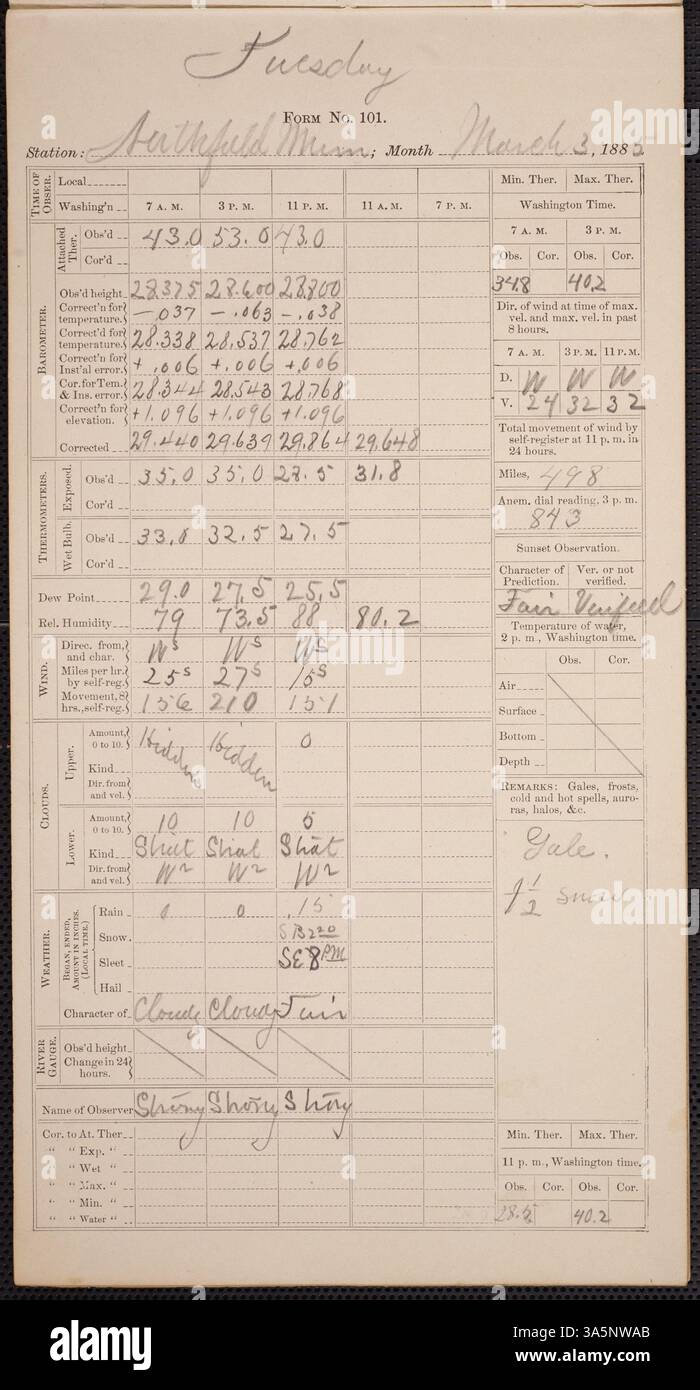 Tuesday
FORM NO. 101.
Station: Northfield Minn; Month March 3, 1885
TIME OF OBSER. Local
Washing'n 7 A. M. 3 P. M. 11 P. M. 11 A. M. 7 P. M.
BAROMETER.
Attached Ther. Obs'd 43.0 53.0 43.0
Cor'd
Obs'd height 28.375 28.600 28.800
Correct'n for temperature. -.037 -.063 -.038
Correct'd for temperature. 28.338 28.537 28.762
Correct'n for Inst'al error. +.006 +.006 +.006
Cor. for Tem. & Ins. error. 28.344 28.543 28.768
Correct'n for elevation. +1.096 +1.096 +1.096
Corrected 29.440 29.639 29.864 29.648
THERMOMETERS.
Exposed. Obs'd 35.0 35.0 28.5 31.8
Cor'd
Wet Bulb. Obs'd 33.0 32.5 27.5
Cor'd
Dew Point 29.0 27.5 25.5
Rel. Humidity 79 73.5 88 80.2
WIND.
Direc. from, and char. Ws Ws Ws
Miles per hr. by self-reg. 25s 27s 15s
Movement, 8 hrs., self-reg. 156 210 151
CLOUDS.
Upper. Amount, 0 to 10. Hidden Hidden 0
Kind
Dir. from and vel.
Lower. Amount, 0 to 10. 10 10 5
Kind Strat Strat Strat
Dir. from and vel. W2 W2 W2
WEATHER.
BEGAN, ENDED, AMOUNT IN INCHES. (LOCAL TIME.)
Rain 0 0 .15
Snow. SB 2 20
Sleet SE 8 PM
Hail
Character of Cloudy Cloudy Fair
RIVER GAUGE.
Obs'd height
Change in 24 hours.
Name of Observer Strong Strong Strong
Cor. to At. Ther.
" " Exp. "
" " Wet "
" " Max. "
" " Min. "
" " Water "
Min. Ther. Max. Ther.
Washington Time.
7 A. M. 3 P. M.
Obs. Cor. Obs. Cor.
34.8 40.2
Dir. of wind at time of max. vel. and max. vel. in past 8 hours.
7 A. M. 3 P.M. 11 P.M.
D. W W W
V. 24 32 32
Total movement of wind by self-register at 11 p. m. in 24 hours.
Miles, 498
Anem. dial reading, 3 p. m.
843
Sunset Observation.
Character of Prediction. Ver. or not verified.
Fair Verified
Temperature of water, 2 p. m., Washington time.
Obs. Cor.
Air
Surface
Bottom
Depth
REMARKS: Gales, frosts, cold and hot spells, auroras, halos, &c.
Gale.
1 1/2 snow
Min. Ther. Max. Ther.
11 p. m., Washington time.
Obs. Cor. Obs. Cor.
28.5 40.2
alamy
Image ID: 3A5NWAB
www.alamy.com